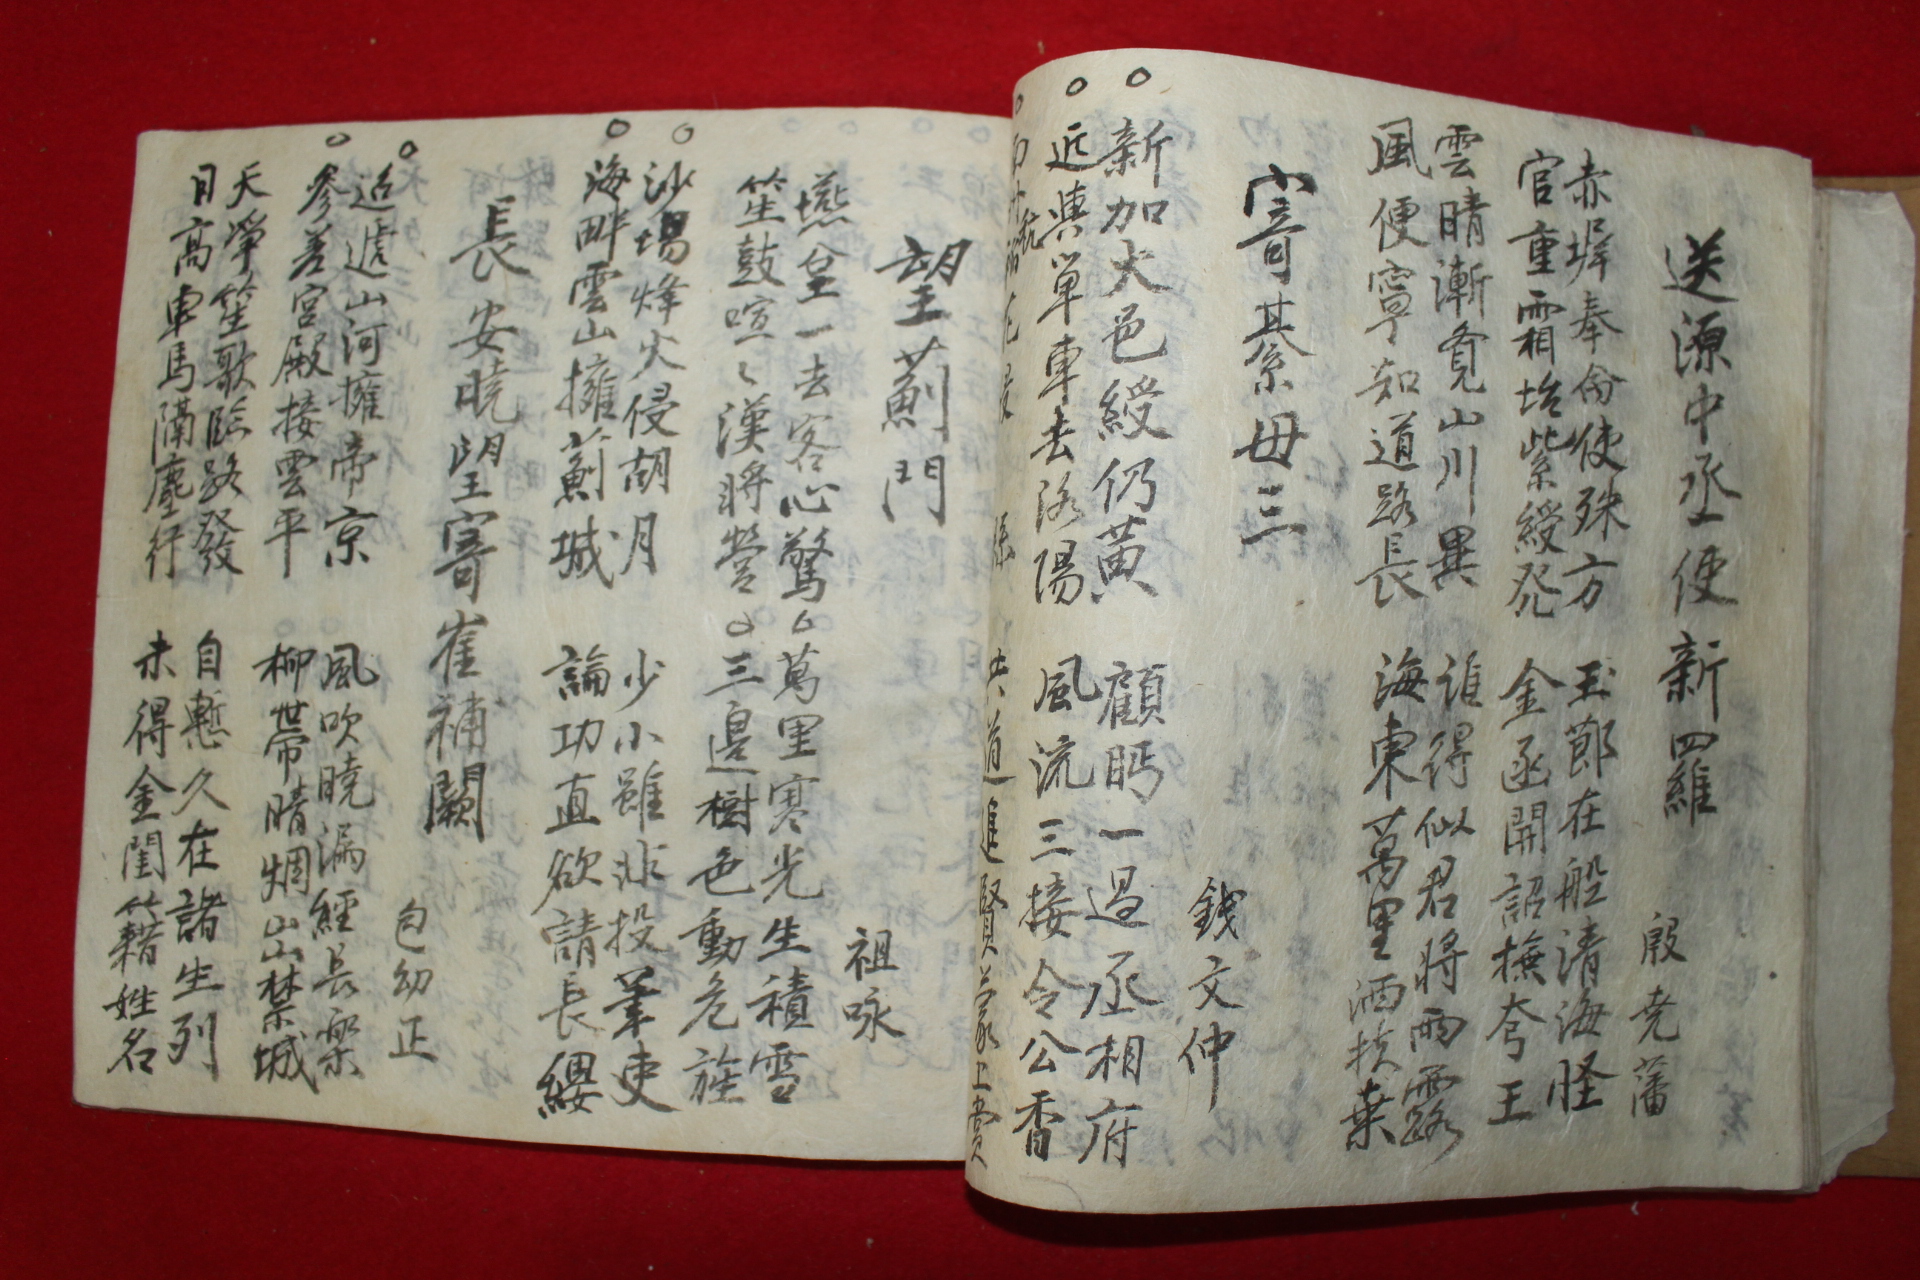 送源中丞使新羅
殷堯藩
赤墀奉命使殊方 玉節在船清海怪
官重霜坮紫綬光 金函開詔撫夸王
雲晴漸覓山川異 誰得似君將雨露
風便寧知道路長 海東萬里洒扶桒
寄綦毋三
錢文仲
新加大邑綬仍黃 顧眄一過丞相府
近與單車去洛陽 風流三接令公香
花 縣 共道進賢蒙上賞
望薊門
祖咏
燕臺一去客心驚 萬里寒光生積雪
笙鼓喧〻漢將營 三邊樹色動危旌
沙場烽火侵胡月 少小雖非投筆吏
海畔雲山擁薊城 論功直欲請長纓
長安曉望寄崔補闕
包幼正
迢遞山河擁帝京 風吹曉漏經長樂
參差宮殿接雲平 柳帶晴烟山禁城
天笙歌臨路發 自慙久在諸生列
日高車馬隔塵行 未得金閨籍姓名